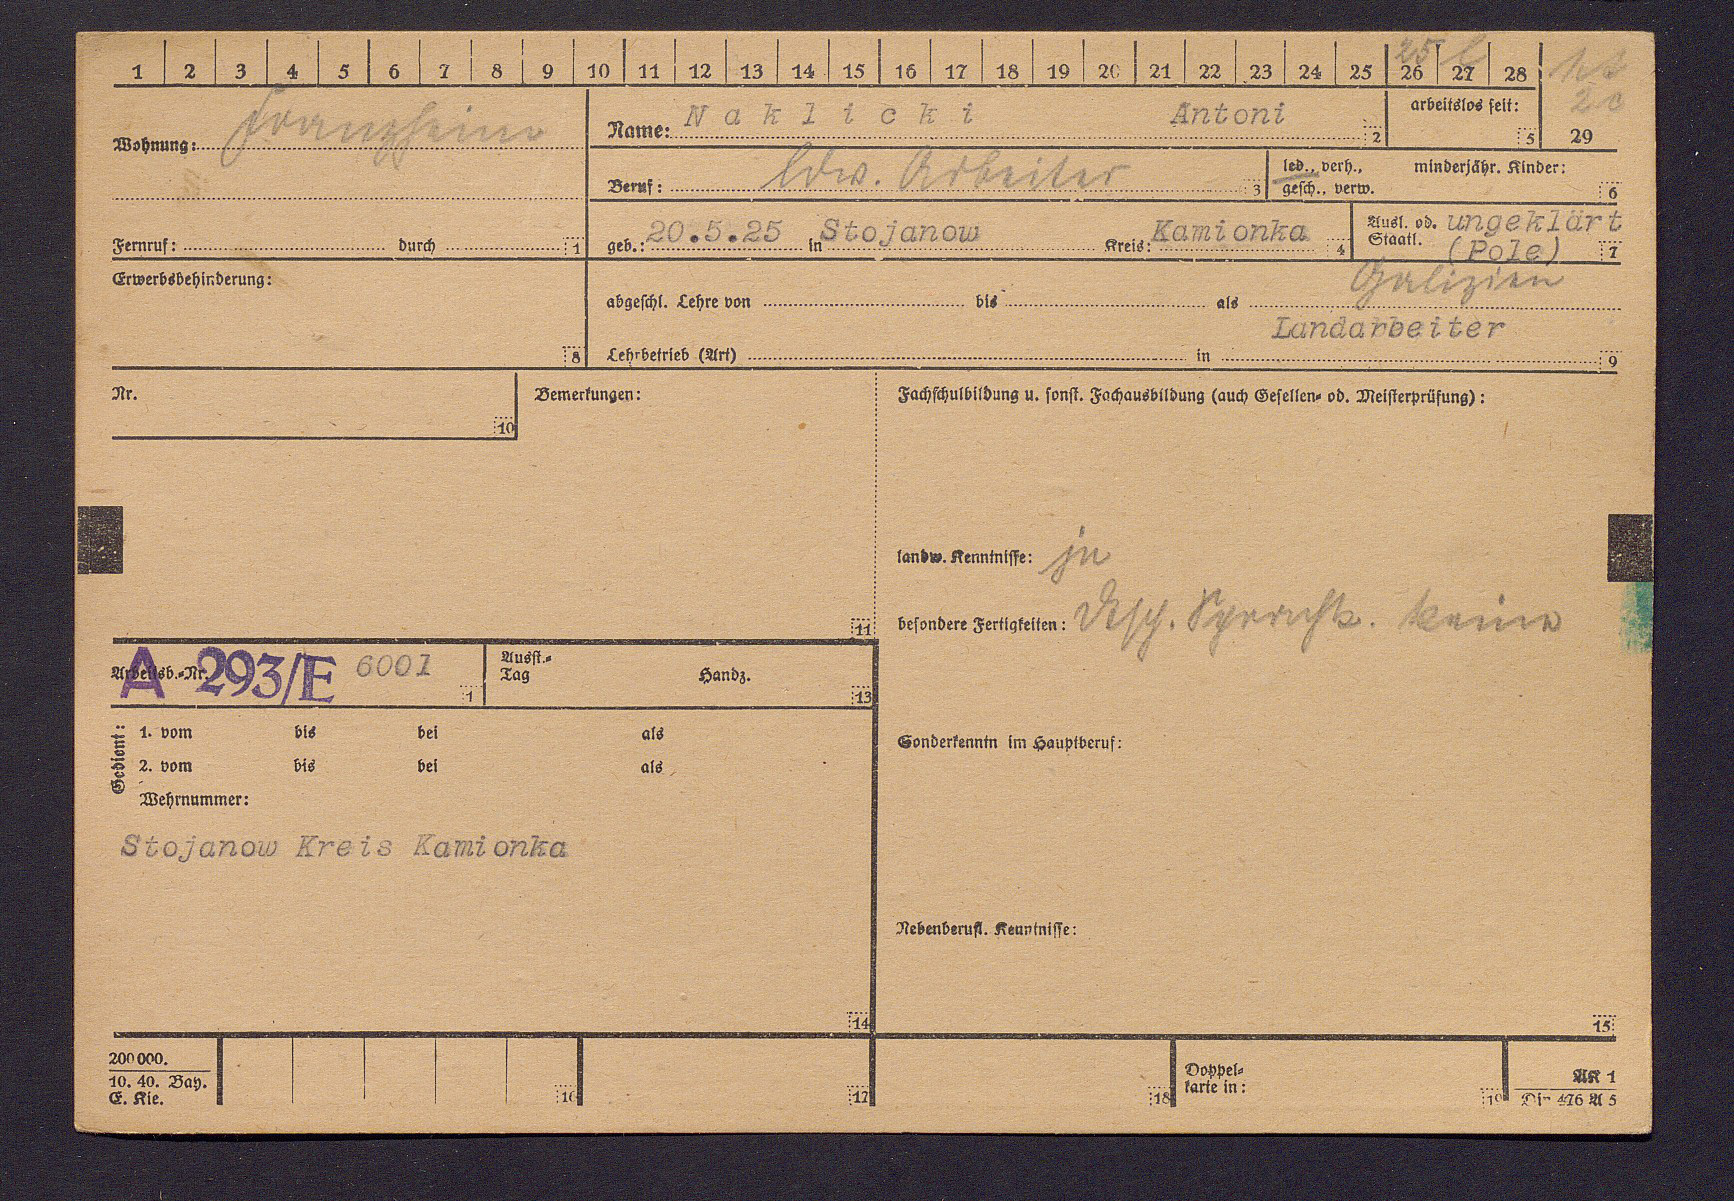 1 2 3 4 5 6 7 8 9 10 11 12 13 14 15 16 17 18 19 20 21 22 23 24 25 26 27 28
25
Wohnung:
Name: Naklicki Antoni 2
arbeitslos seit: 5
29
Beruf: ldw. Arbeiter 3
led., verh., gesch., verw.
minderjähr. Kinder: 6
Fernruf: durch 1
geb.: 20.5.25 in Stojanow Kreis: Kamionka 4
Ausl. od. Staatl. ungeklärt (Pole) 7
Galizien
Erwerbsbehinderung: 8
abgeschl. Lehre von bis als
Landarbeiter
Lehrbetrieb (Art) in 9
Nr. 10
Bemerkungen: 11
Fachschulbildung u. sonst. Fachausbildung (auch Gesellen- od. Meisterprüfung):
landw. Kenntnisse: ja
besondere Fertigkeiten: Dtsch. Sprachk. keine
Arbeitsb.-Nr. A 293/E 6001 1
Ausst.-Tag Handz. 13
Gedient:
1. vom bis bei als
2. vom bis bei als
Wehrnummer:
Stojanow Kreis Kamionka
14
Sonderkenntn im Hauptberuf:
Nebenberufl. Kenntnisse:
15
200000.
10. 40. Bay.
E. Kie.
16 17 18
Doppel-
karte in: 19
AK 1
Din 476 A 5